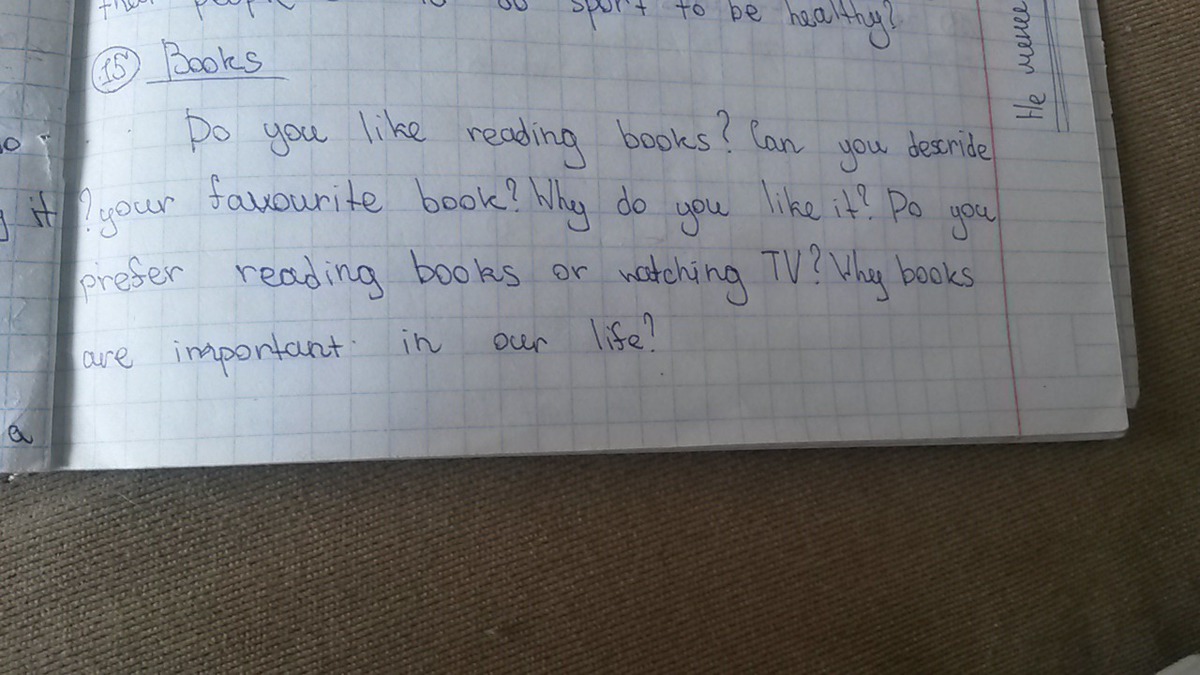 people to do sport to be healthy?
15 Books
Do you like reading books? Can you descride
your favourite book? Why do you like it? Do you
prefer reading books or watching TV? Why books
are important in our life?
Не менее
it?
a